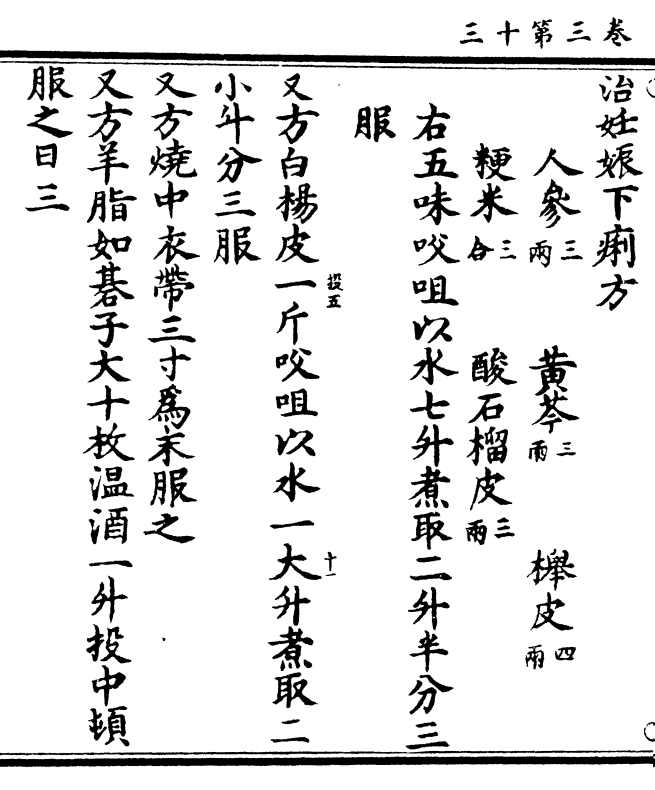 卷三第十三
治妊娠下痢方
人參三兩 黃芩三兩 櫸皮四兩
粳米三合 酸石榴皮三兩
右五味㕮咀以水七升煮取二升半分三
服
又方白楊皮一斤㕮咀以水一大升煮取二
投五
十一
小斗分三服
又方燒中衣帶三寸爲末服之
又方羊脂如碁子大十枚温酒一升投中頓
服之日三